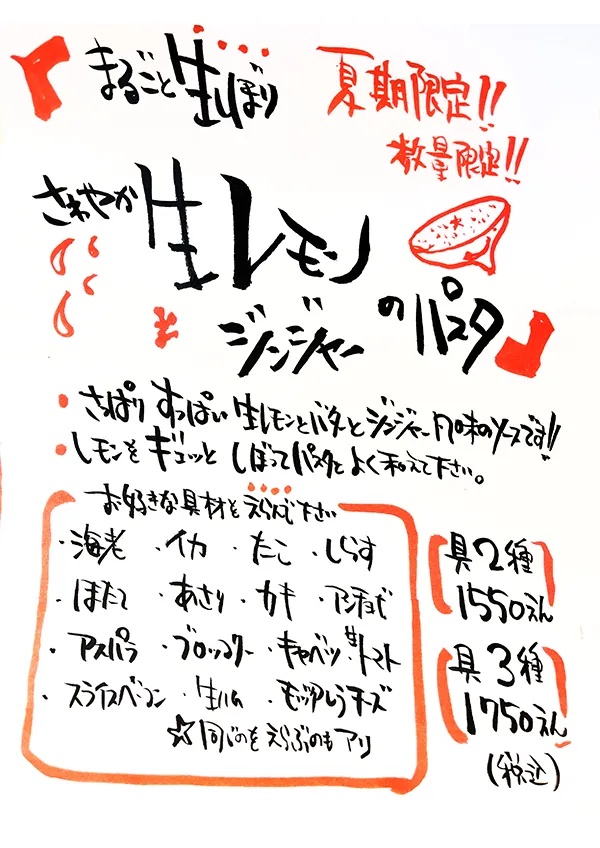 まるごと生しぼり
夏期限定!!
数量限定!!
さわやか生レモン
ジンジャーのパスタ
・さっぱりすっぱい生レモンとバターとジンジャー風味のソースです!!
・レモンをギュッとしぼってパスタとよく和えて下さい。
お好きな具材をえらんで下さい
・海老 ・イカ ・たこ ・しらす
・ほたて ・あさり ・カキ ・アンチョビ
・アスパラ ・ブロッコリー ・キャベツ ・生トマト
・スライスベーコン ・生ハム ・モッツァレラチーズ
☆同じのをえらぶのもアリ
具2種
1550えん
具3種
1750えん
(税込)